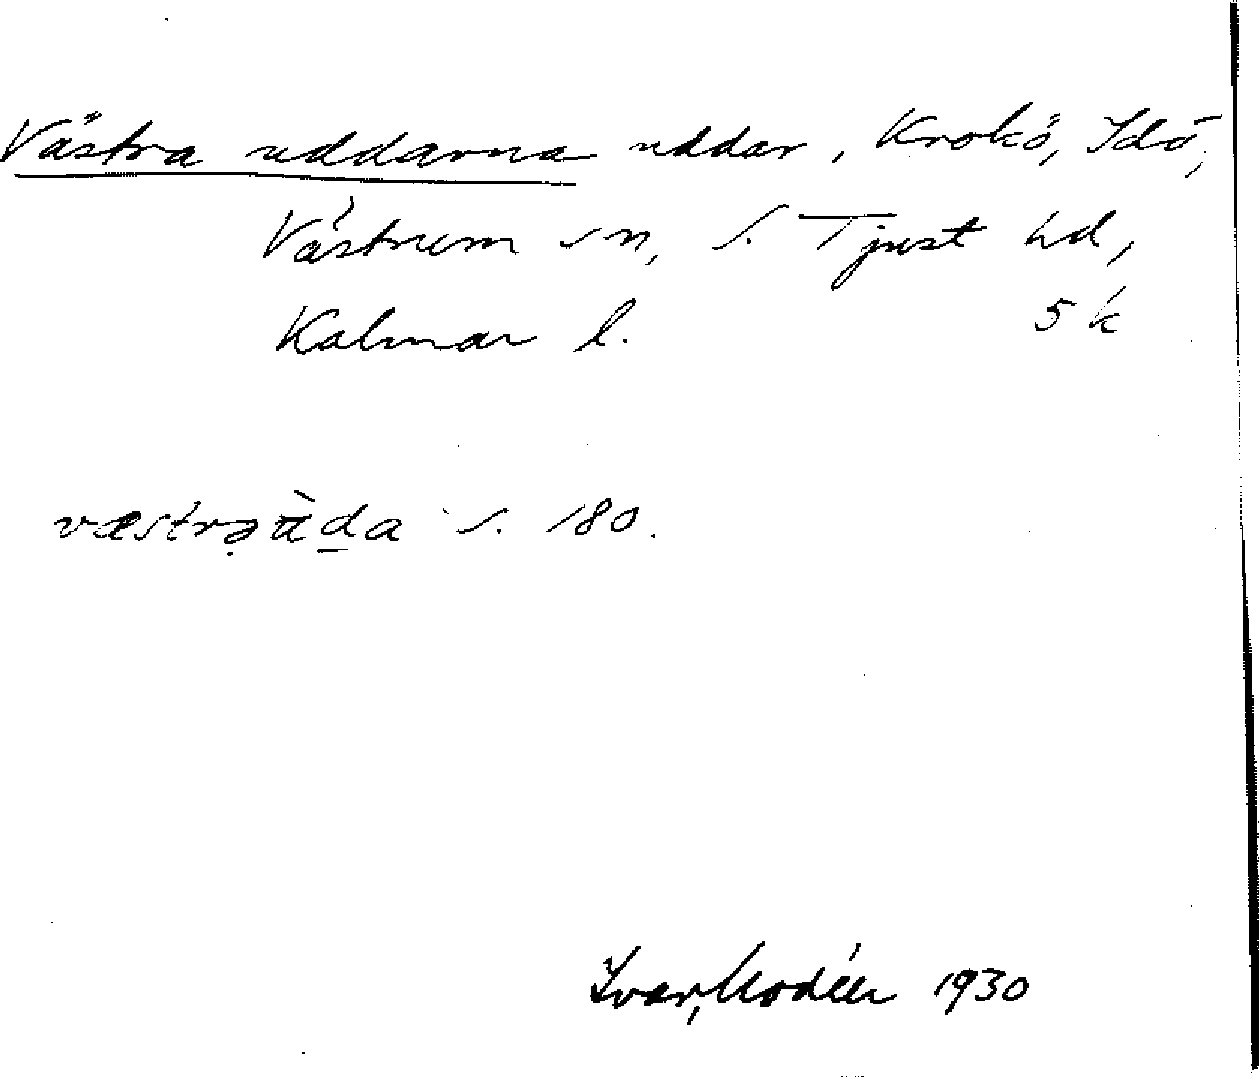 Västra uddarna uddar, Krokö, Idö,
Västrum sn, S. Tjust hd,
Kalmar l. 5 k
væstrə̣ ùd̲a s. 180.
Ivar Modéer 1930